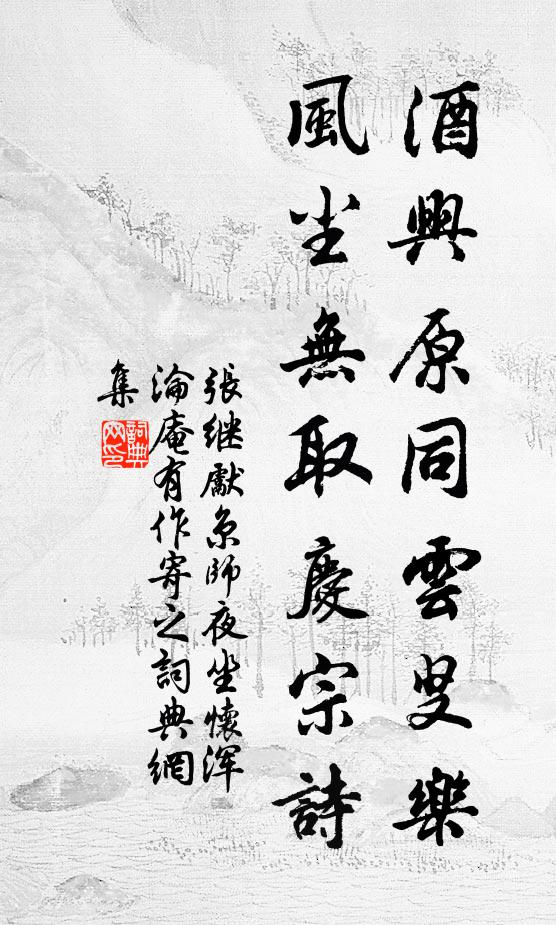 酒興原同雲叟樂
風尘無取慶宗詩
張继獻京師夜坐懷浑
淪庵有作寄之詞典網
集
詞典
网印